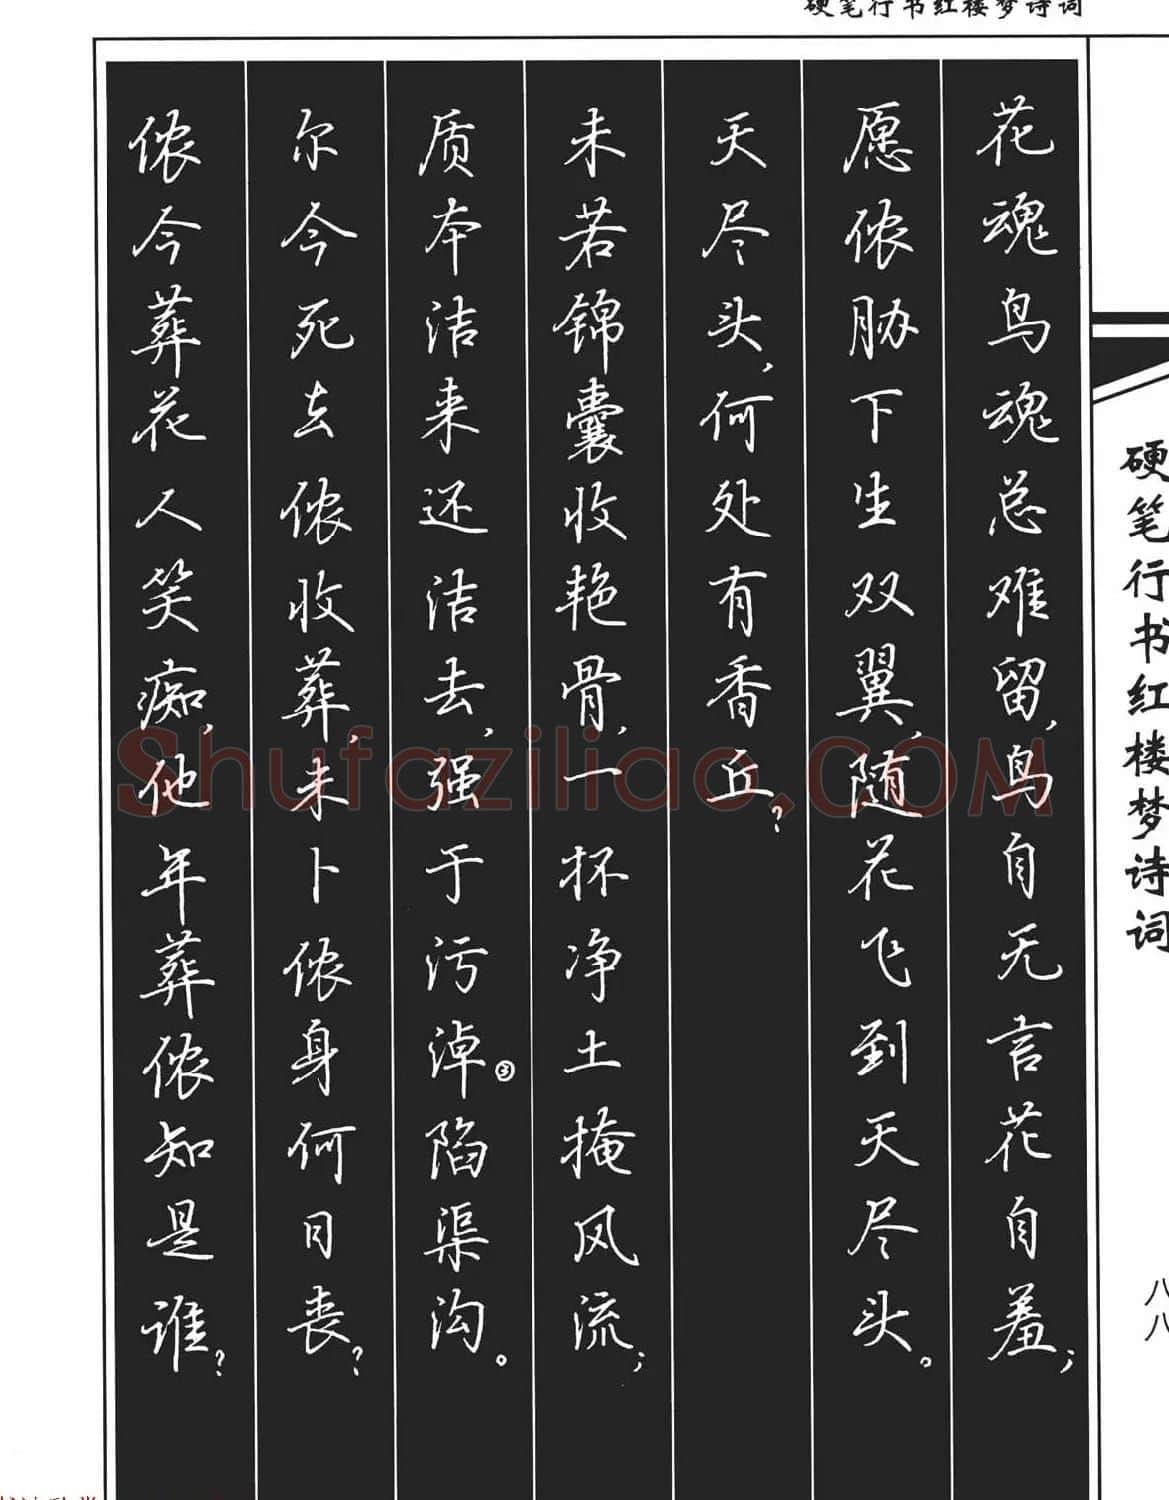 硬笔行书红楼梦诗词
花魂鸟魂总难留，鸟自无言花自羞；
愿侬胁下生双翼，随花飞到天尽头。
天尽头，何处有香丘？
未若锦囊收艳骨，一抔净土掩风流；
质本洁来还洁去，强于污淖③陷渠沟。
尔今死去侬收葬，未卜侬身何日丧？
侬今葬花人笑痴，他年葬侬知是谁？
硬笔行书红楼梦诗词
八八
Shufaziliao.COM